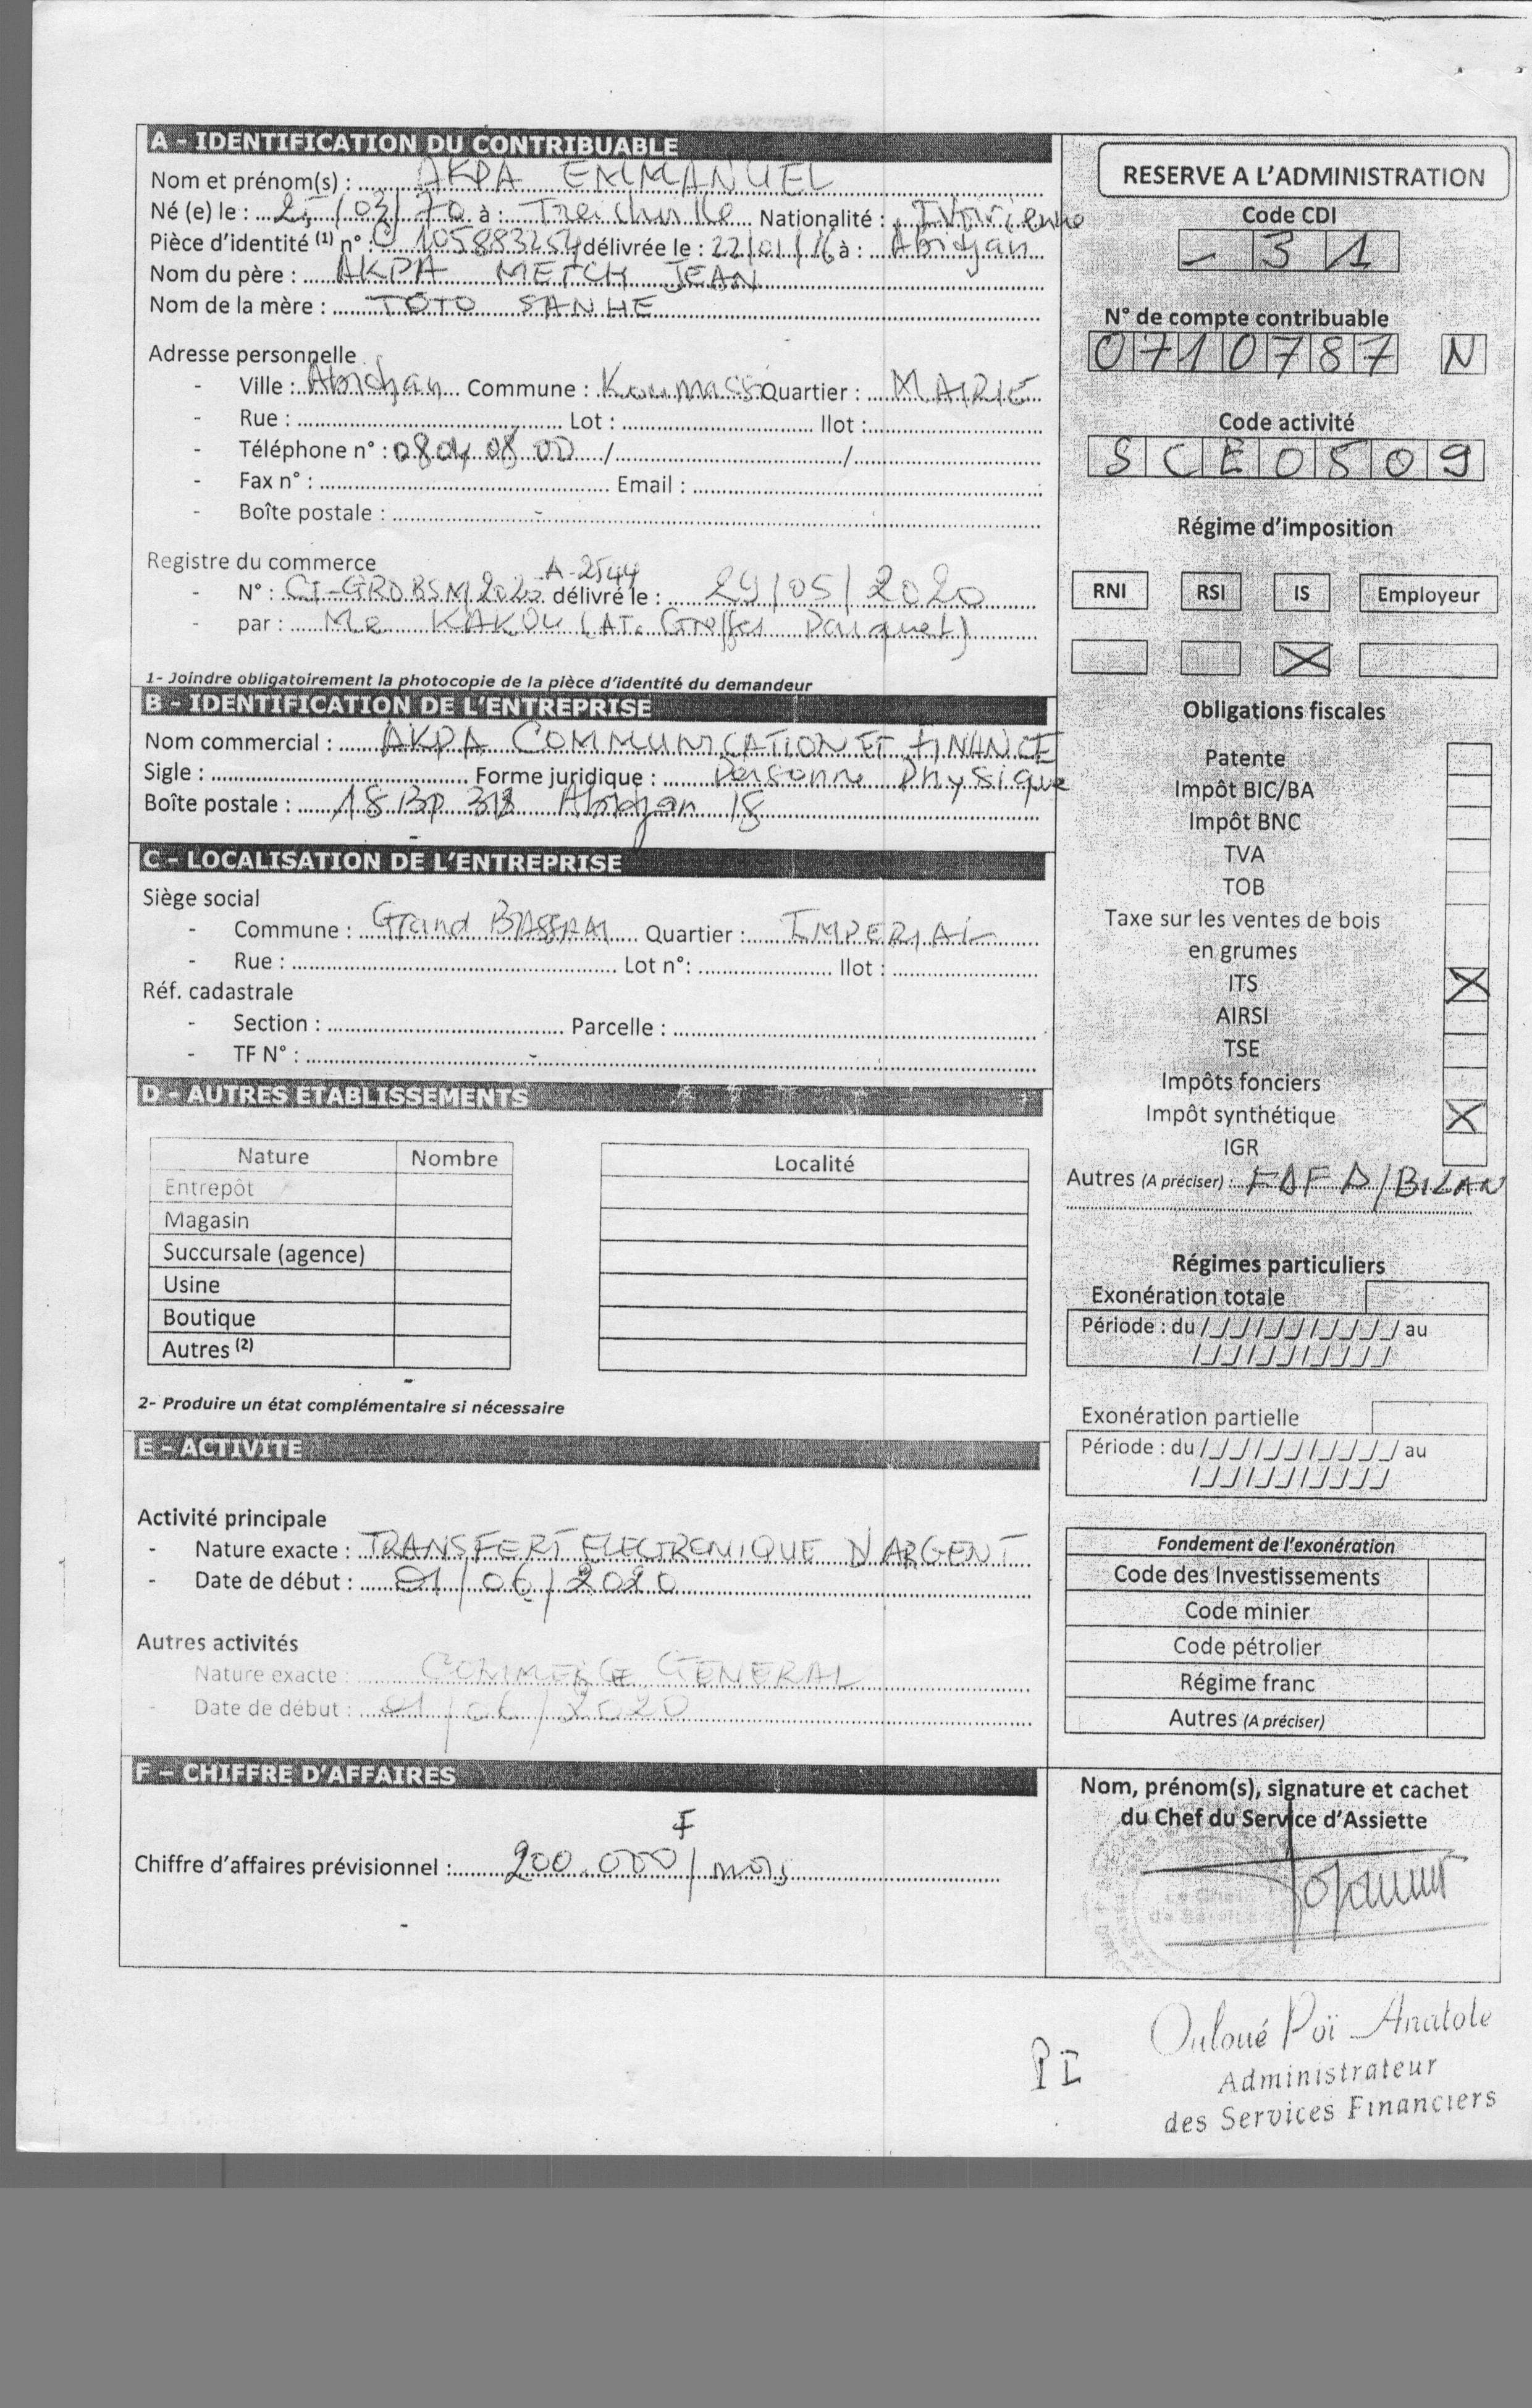 A - IDENTIFICATION DU CONTRIBUABLE
Nom et prénom(s) : AKPA EMMANUEL
Né (e) le : 25/03/70 à : Treichville Nationalité : Ivoirienne
Pièce d'identité (1) n° : C 105883254 délivrée le : 22/01/16 à : Abidjan
Nom du père : AKPA METCH JEAN
Nom de la mère : TOTO SANHE
Adresse personnelle
- Ville : Abidjan Commune : Koumassi Quartier : MAIRIE
- Rue : Lot : Ilot :
- Téléphone n° : 08 04 08 00 / /
- Fax n° : Email :
- Boîte postale :
Registre du commerce
- N° : CI-GRDBSM 2020 A-2544 délivré le : 29/05/2020
- par : Me KAKOU (AT. Greffes Parquet)
1- Joindre obligatoirement la photocopie de la pièce d'identité du demandeur
B - IDENTIFICATION DE L'ENTREPRISE
Nom commercial : AKPA COMMUNICATION ET FINANCE
Sigle : Forme juridique : Personne Physique
Boîte postale : 18 BP Abidjan 18
C - LOCALISATION DE L'ENTREPRISE
Siège social
- Commune : Grand BASSAM Quartier : IMPERIAL
- Rue : Lot n°: Ilot :
Réf. cadastrale
- Section : Parcelle :
- TF N° :
D - AUTRES ETABLISSEMENTS
Nature Nombre Localité
Entrepôt
Magasin
Succursale (agence)
Usine
Boutique
Autres (2)
2- Produire un état complémentaire si nécessaire
E - ACTIVITE
Activité principale
- Nature exacte : TRANSFERT ELECTRONIQUE D'ARGENT
- Date de début : 01/06/2020
Autres activités
Nature exacte : COMMERCE GENERAL
- Date de début : 01/06/2020
F - CHIFFRE D'AFFAIRES
Chiffre d'affaires prévisionnel : 200.000 F/mois
RESERVE A L'ADMINISTRATION
Code CDI
- 3 1
N° de compte contribuable
0710787 N
Code activité
SCE0509
Régime d'imposition
RNI RSI IS Employeur
Obligations fiscales
Patente
Impôt BIC/BA
Impôt BNC
TVA
TOB
Taxe sur les ventes de bois
en grumes
ITS
AIRSI
TSE
Impôts fonciers
Impôt synthétique
IGR
Autres (A préciser) : FDFP/BILAN
Régimes particuliers
Exonération totale
Période : du /_/_/_/_/_/_/_/_/ au
/_/_/_/_/_/_/_/_/
Exonération partielle
Période : du /_/_/_/_/_/_/_/_/ au
/_/_/_/_/_/_/_/_/
Fondement de l'exonération
Code des Investissements
Code minier
Code pétrolier
Régime franc
Autres (A préciser)
Nom, prénom(s), signature et cachet
du Chef du Service d'Assiette
Le Chef
de Service
PI
Ouloué Poï Anatole
Administrateur
des Services Financiers